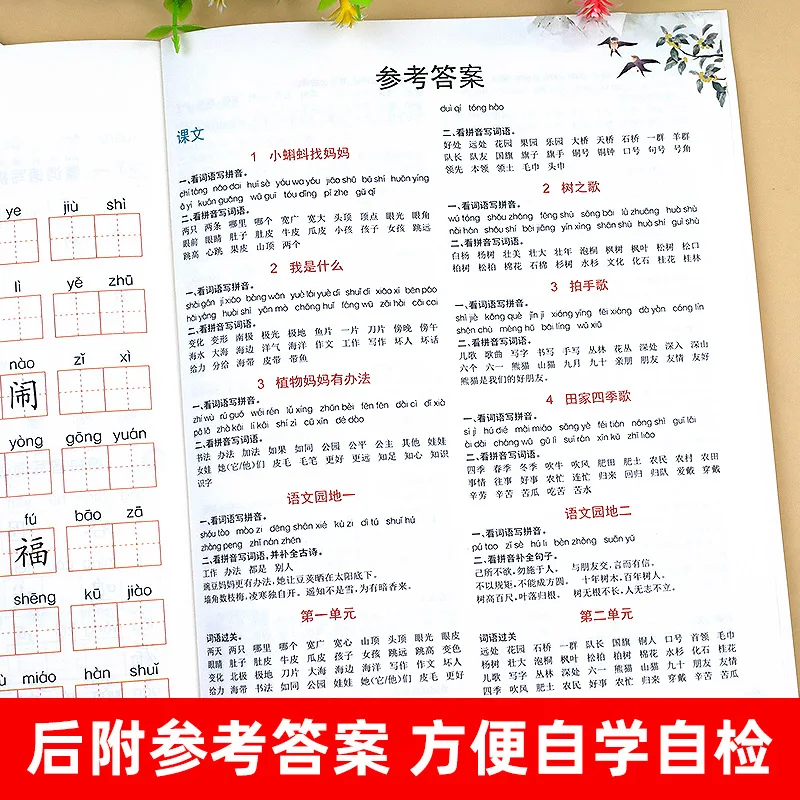 ye jiù shì
lì yě zhū
nào zǐ xì
闹
yòng gōng yuán
fú bāo zā
福
shēng kū jiào
miáo hàn shuǐ
参考答案
课文
1 小蝌蚪找妈妈
一、看词语写拼音。
二、看拼音写词语。
两只 两条 哪里 哪个 宽广 宽大 头顶 顶点 眼光 眼角
眼前 眼睛 肚子 肚皮 牛皮 瓜皮 小孩 孩子 女孩 跳远
跳高 心跳 果皮 山顶 两个
2 我是什么
一、看词语写拼音。
二、看拼音写词语。
变化 变形 南极 极光 极地 鱼片 一片 刀片 傍晚 傍午
海水 大海 海边 洋气 海洋 作文 工作 写作 坏人 坏话
给力 分给 海带 皮带 带鱼
3 植物妈妈有办法
一、看词语写拼音。
二、看拼音写词语。
书法 办法 加法 如果 如同 公园 公平 公主 其他 娃娃
女娃 她(它/他)们 皮毛 毛笔 更好 更远 知足 知心 知识
识字
语文园地一
一、看词语写拼音。
二、看拼音写词语,并补全古诗。
工作 办法 都是 别人
豌豆妈妈更有办法,她让豆荚晒在太阳底下。
墙角数枝梅,凌寒独自开。遥知不是雪,为有暗香来。
第一单元
词语过关。
两天 两只 哪里 哪个 宽广 宽心 山顶 头顶 眼光 眼皮
眼睛 肚子 肚皮 牛皮 瓜皮 孩子 女孩 跳远 跳高 变色
变化 北极 极地 大片 刀片 大海 海边 海洋 写作 作文 坏人
给力 海带 书法 如同 公园 娃娃 她(它/他)们 皮毛 更好
duì qí tóng hào
二、看拼音写词语。
好处 远处 花园 果园 乐园 大桥 天桥 石桥 一群 羊群
队长 队友 国旗 旗子 旗手 铜号 铜钟 口号 句号 号角
领先 本领 领土 毛巾 头巾
2 树之歌
一、看词语写拼音。
二、看拼音写词语。
白杨 杨树 壮美 壮大 壮年 泡桐 枫树 枫叶 松树 松口
柏树 松柏 棉花 石棉 杉树 水杉 文化 化石 桂花 桂林
3 拍手歌
一、看词语写拼音。
二、看拼音写词语。
儿歌 歌曲 写字 书写 手写 丛林 花丛 深处 深入 深山
六个 六一 熊猫 山猫 九月 九十 亲朋 朋友 友情 友好
熊猫是我们的好朋友。
4 田家四季歌
一、看词语写拼音。
二、看拼音写词语。
四季 春季 冬季 吹牛 吹风 肥田 肥土 农民 农村 农田
事情 往事 好事 农忙 连忙 归来 回归 归队 爱戴 穿戴
辛劳 辛苦 苦瓜 吃苦 苦水
语文园地二
一、看词语写拼音。
二、看拼音补全句子。
己所不欲,勿施于人。 与朋友交,言而有信。
不以规矩,不能成方圆。 十年树木,百年树人。
树高百尺,叶落归根。 树无根不长,人无志不立。
第二单元
词语过关
远处 花园 石桥 一群 队长 国旗 铜人 口号 首领 毛巾
杨树 壮大 泡桐 枫叶 松柏 柏树 棉花 水杉 化石 桂花
儿歌 写字 丛林 深山 六一 熊猫 山猫 九十 朋友 友情
四季 吹风 肥土 农民 好事 农忙 归来 穿戴 辛苦 苦瓜
后附参考答案 方便自学自检